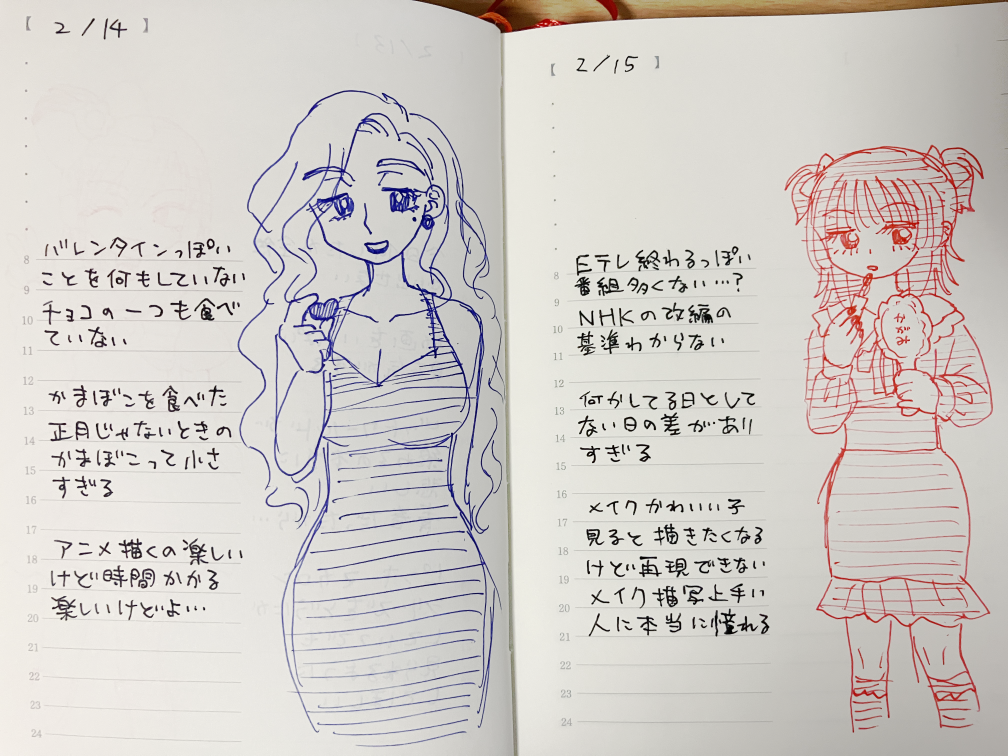 【 2/14 】
バレンタインっぽい
ことを何もしていない
チョコの一つも食べ
ていない
かまぼこを食べた
正月じゃないときの
かまぼこって小さ
すぎる
アニメ描くの楽しい
けど時間かかる
楽しいけどよ…
8
9
10
11
12
13
14
15
16
17
18
19
20
21
22
23
24
【 2/15 】
Eテレ終わるっぽい
番組多くない…?
NHKの改編の
基準わからない
何かしてる日として
ない日の差があり
すぎる
メイクかわいい子
見ると描きたくなる
けど再現できない
メイク描写上手い
人に本当に憧れる
8
9
10
11
12
13
14
15
16
17
18
19
20
21
22
23
24
かがみ